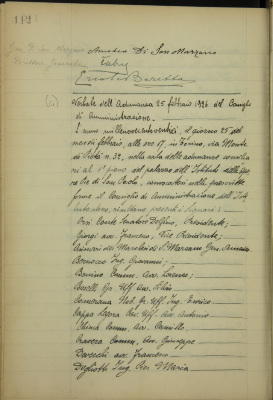 Amedeo Di San Marzano
Ernesto Baretta
(1) Verbale dell'Adunanza 25 febbraio 1926 del Consiglio
di Amministrazione.
L'anno millenoventoventisei, il giorno 25 del
mese di febbraio, alle ore 17, in Torino, via Monte
di Pietà n. 32, nella sala delle adunanze consilia
ri al 1° piano del palazzo dell'Istituto delle Ope
re Pie di San Paolo, convocatosi nelle prescritte
forme il Consiglio di Amministrazione dell'Isti
tuto stesso, risultano presenti i Signori:
Orsi Conte Senatore Delfino, Presidente;
Giorgi avv. Francesco, Vice Presidente;
Asinari dei Marchesi di S. Marzano Gen. Amedeo
Bernocco Ing. Giovanni;
Bonino Comm. Avv. Lorenzo;
Uff. Avv.
Uff. Ing. Enrico
Cappa Legora Cav. Uff. Avv. Antonio
China Comm. Avv. Camillo
Cravera Comm. Avv. Giuseppe
avv. Francesco
Degliotti Ing. Cav. G. Maria